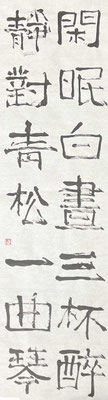 閑眠白晝三杯醉
靜對青松一曲琴